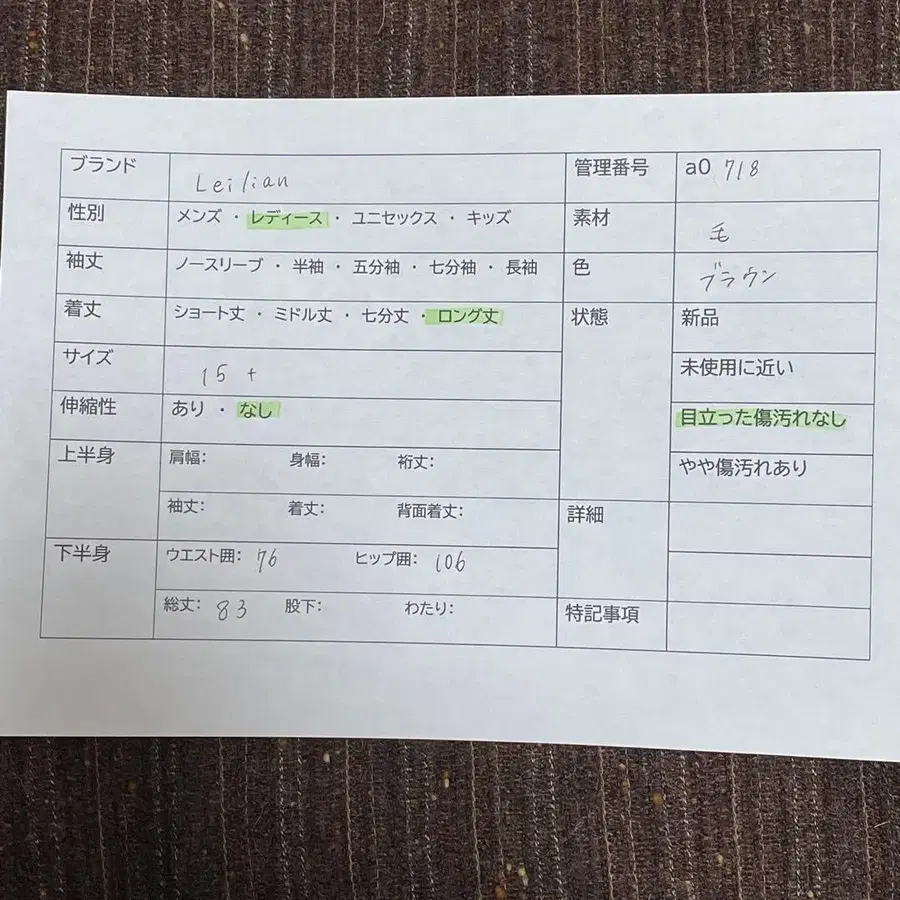 ブランド Leilian 管理番号 a0 718
性別 メンズ ・ レディース ・ ユニセックス ・ キッズ 素材 毛
袖丈 ノースリーブ ・ 半袖 ・ 五分袖 ・ 七分袖 ・ 長袖 色 ブラウン
着丈 ショート丈 ・ ミドル丈 ・ 七分丈 ・ ロング丈 状態 新品
サイズ 15 + 未使用に近い
伸縮性 あり ・ なし 目立った傷汚れなし
上半身 肩幅: 身幅: 裄丈: やや傷汚れあり
袖丈: 着丈: 背面着丈: 詳細
下半身 ウエスト囲: 76 ヒップ囲: 106
総丈: 83 股下: わたり: 特記事項